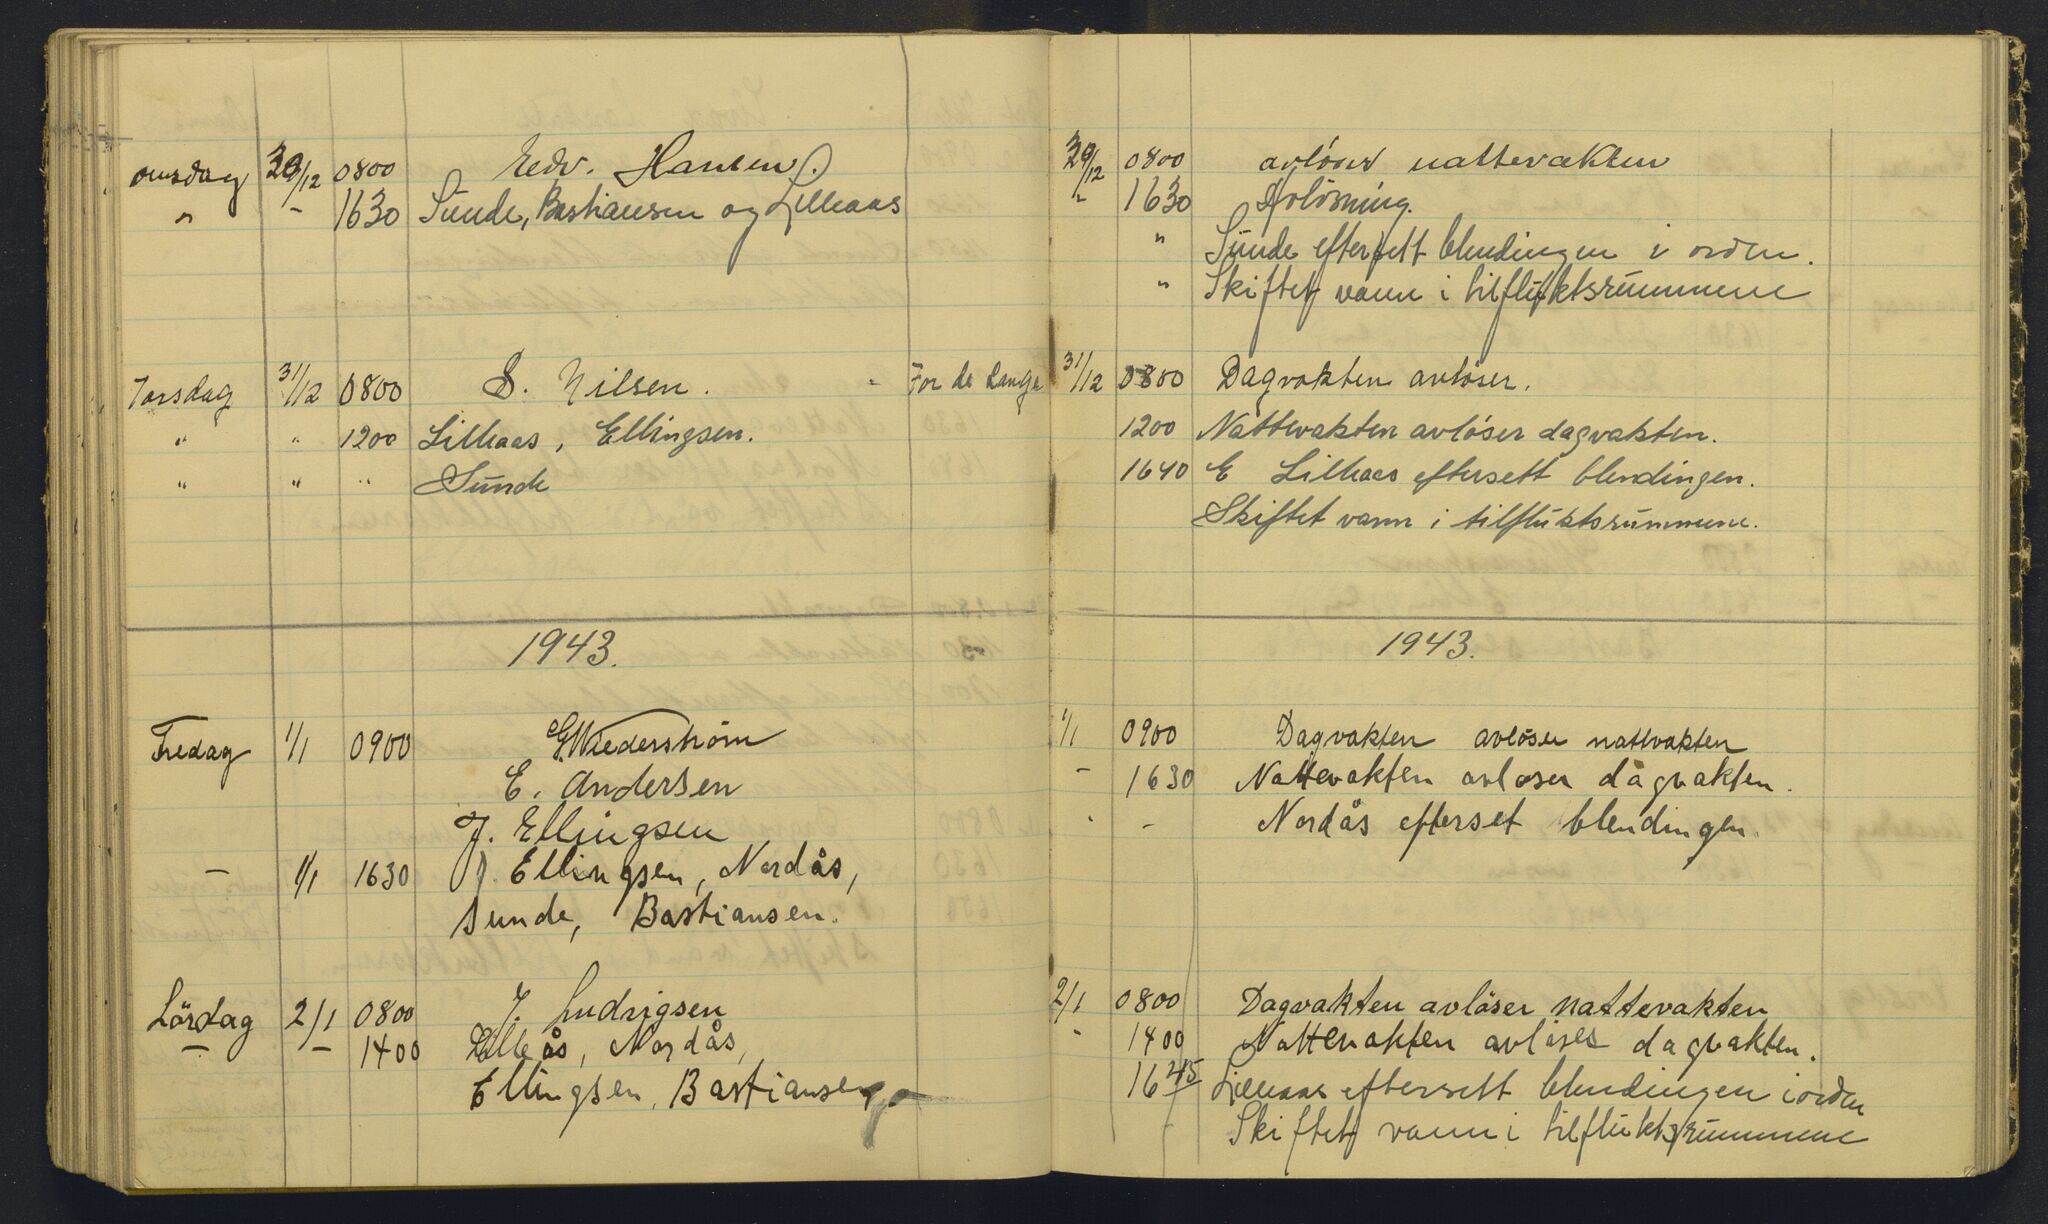 onsdag 30/12 0800 Edv. Hansen.
" - 1630 Sunde, Bastiansen og Lilleaas
Torsdag 31/12 0800 S. Nilsen. For de Lange
" " 1200 Lilleaas, Ellingsen.
" " " Sunde
1943.
Fredag 1/1 0900 G. Wiederstrøm
E. Andersen
J. Ellingsen
- 1/1 1630 J. Ellingsen, Nordås,
Sunde, Bastiansen.
Lördag 2/1 0800 J. Ludvigsen
- - 1400 Lilleås, Nordås,
Ellingsen, Bastiansen
30/12 0800 avløser nattevakten
" 1630 Avløsning.
" Sunde eftersett blendingen i orden.
" Skiftet vann i tilfluktsrummene
31/12 0800 Dagvakten avløser.
1200 Nattevakten avløser dagvakten.
1640 E Lilleaas eftersett blendingen.
Skiftet vann i tilfluktsrummene.
1943.
1/1 0900 Dagvakten avløser nattvakten
- 1630 Nattevakten avløser dagvakten.
- Nordås efterset blendingen.
2/1 0800 Dagvakten avløser nattevakten
- 1400 Nattevakten avløser dagvakten.
1645 Lilleaas eftersett blendingen i orden
Skiftet vann i tilfluktsrummene